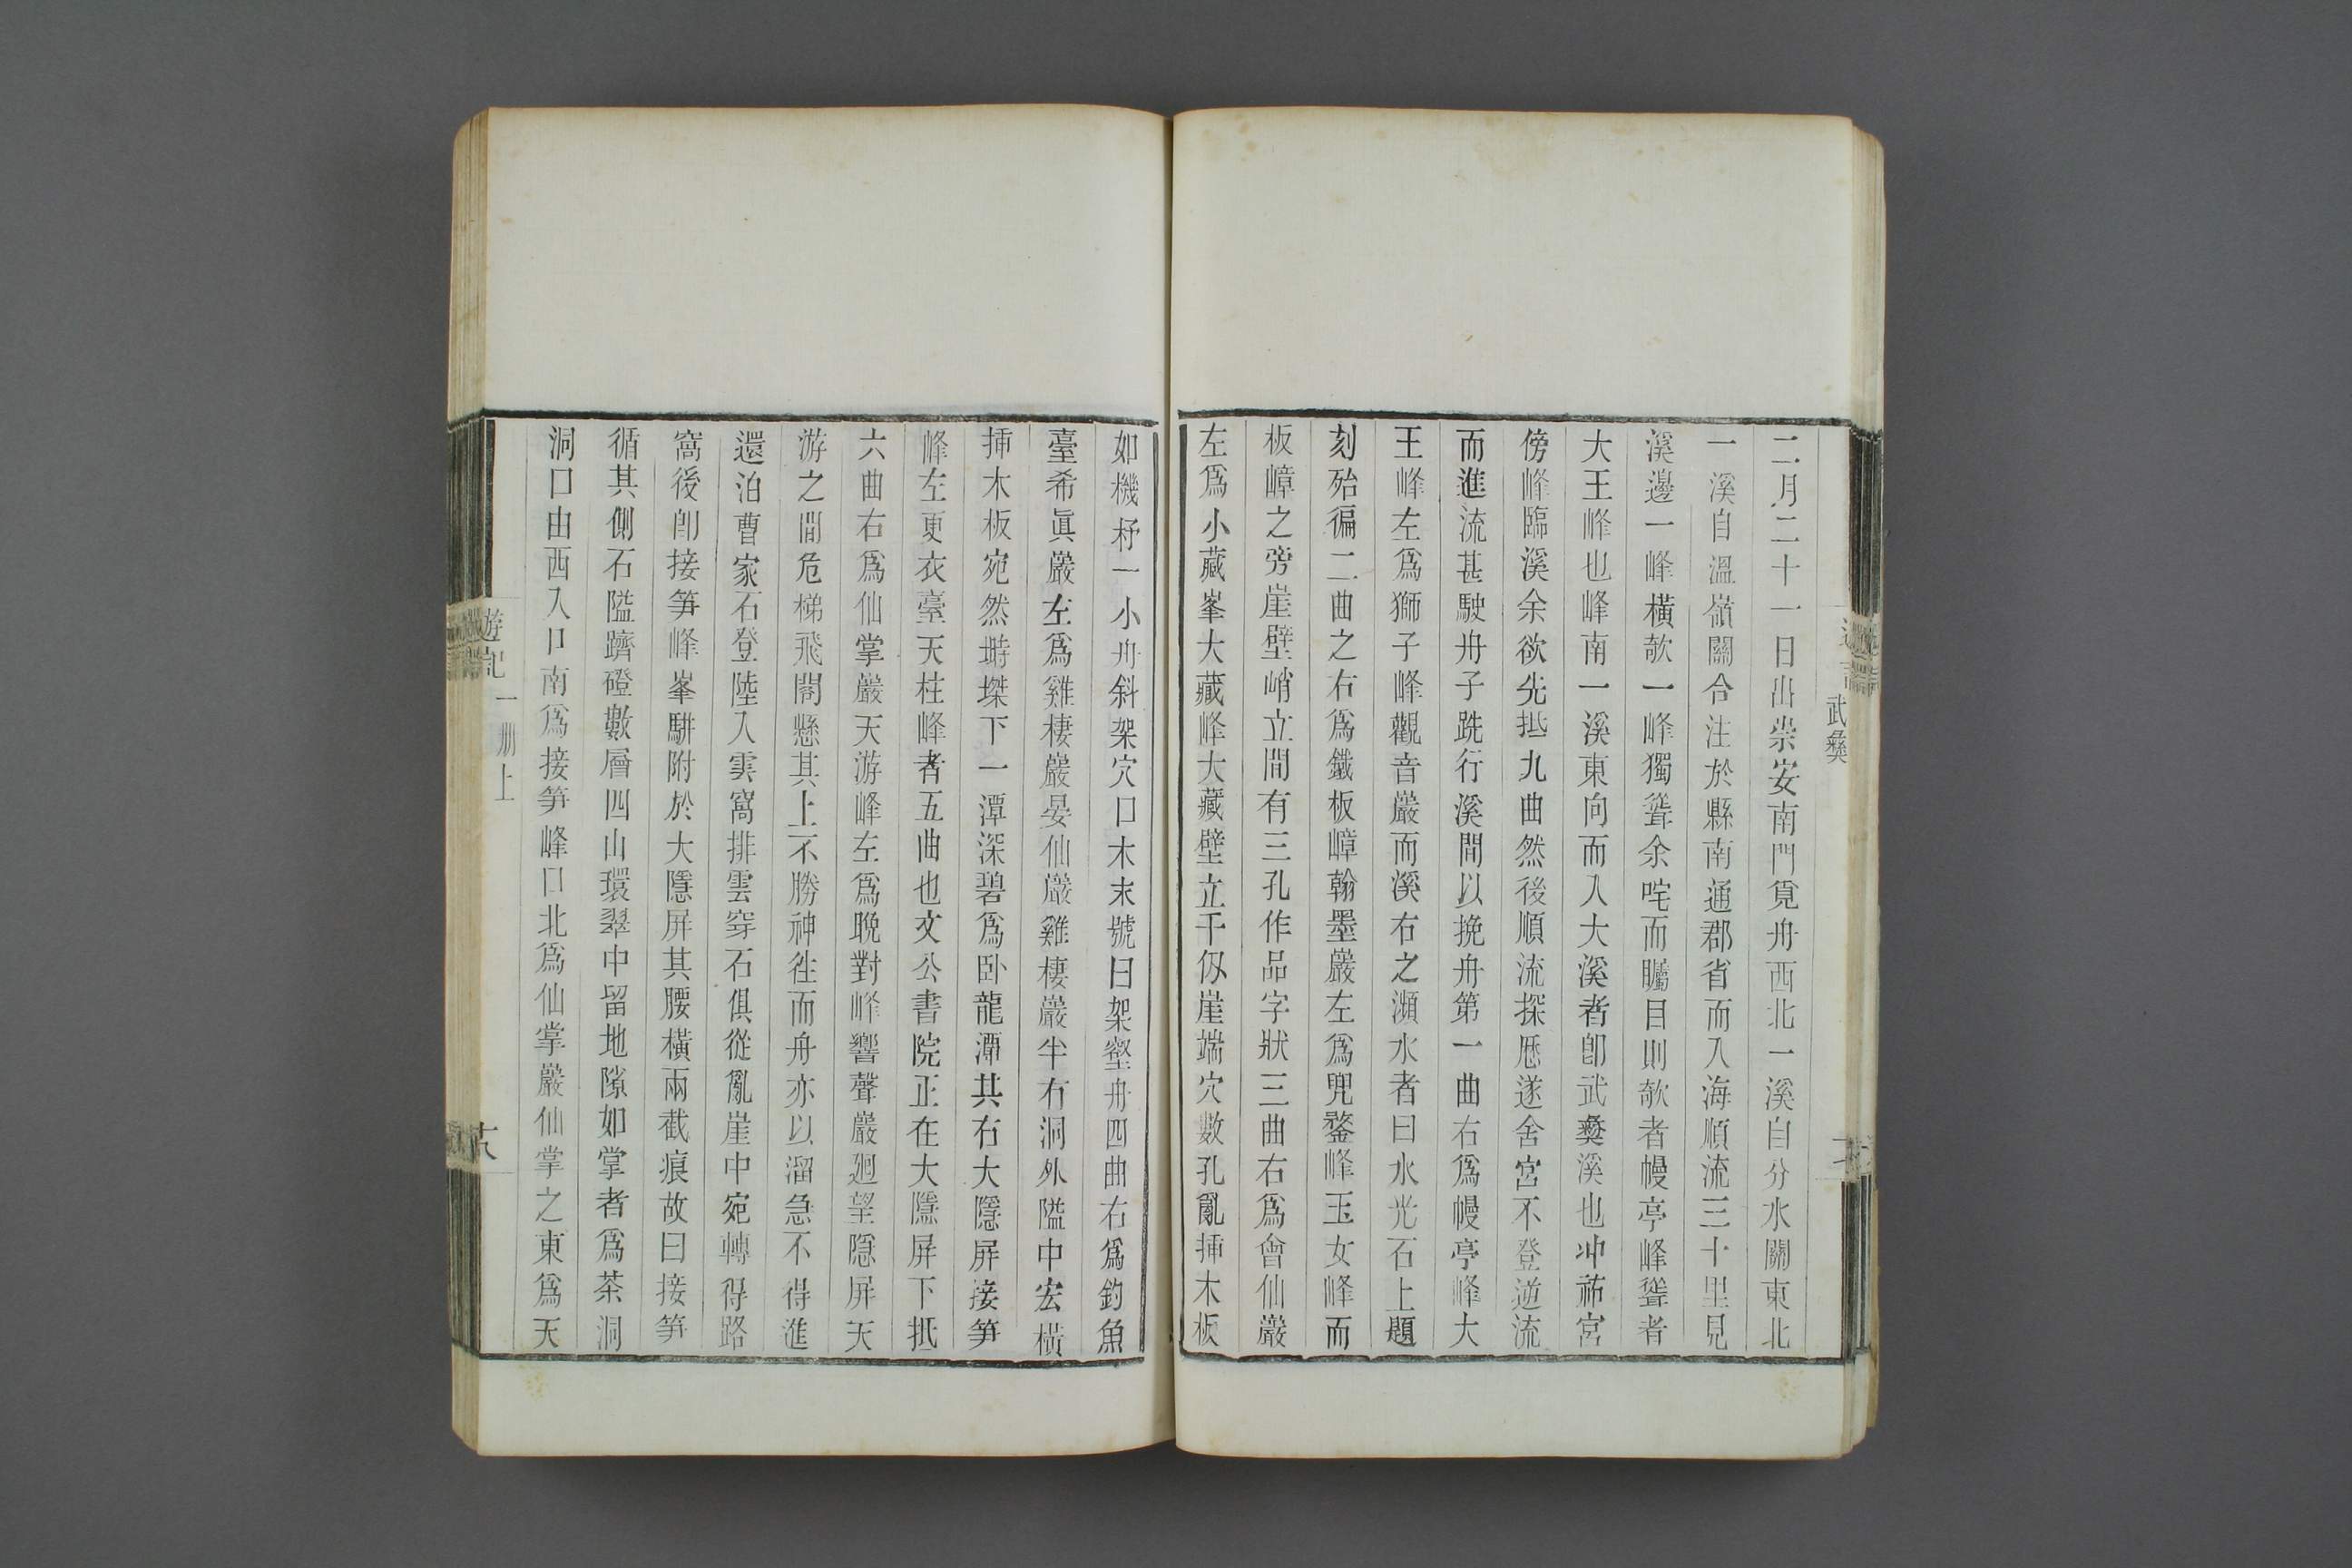 武彝
二月二十一日出崇安南門覓舟西北一溪自分水關東北
一溪自溫嶺關合注於縣南通郡省而入海順流三十里見
溪邊一峰橫欹一峰獨聳余咤而矚目則欹者幔亭峰聳者
大王峰也峰南一溪東向而入大溪者卽武彝溪也冲祐宮
傍峰臨溪余欲先抵九曲然後順流探歷遂舍宮不登逆流
而進流甚駛舟子跣行溪間以挽舟第一曲右爲幔亭峰大
王峰左爲獅子峰觀音巖而溪右之瀕水者曰水光石上題
刻殆徧二曲之右爲鐵板嶂翰墨巖左爲兜鍪峰玉女峰而
板嶂之旁崖壁峭立間有三孔作品字狀三曲右爲會仙巖
左爲小藏峯大藏峰大藏壁立千仭崖端穴數孔亂揷木板
如機杼一小舟斜架穴口木末號曰架壑舟四曲右爲釣魚
臺希眞巖左爲雞棲巖晏仙巖雞棲巖半有洞外隘中宏橫
揷木板宛然塒榤下一潭深碧爲臥龍潭其右大隱屛接笋
峰左更衣臺天柱峰者五曲也文公書院正在大隱屛下抵
六曲右爲仙掌巖天游峰左爲晚對峰響聲巖廻望隱屛天
游之間危梯飛閣懸其上不勝神徃而舟亦以溜急不得進
還泊曹家石登陸入雲窩排雲穿石俱從亂崖中宛轉得路
窩後卽接笋峰峯騈附於大隱屛其腰橫兩截痕故曰接笋
循其側石隘躋磴數層四山環翠中留地隙如掌者爲茶洞
洞口由西入口南爲接笋峰口北爲仙掌巖仙掌之東爲天
遊記
一册上
十六